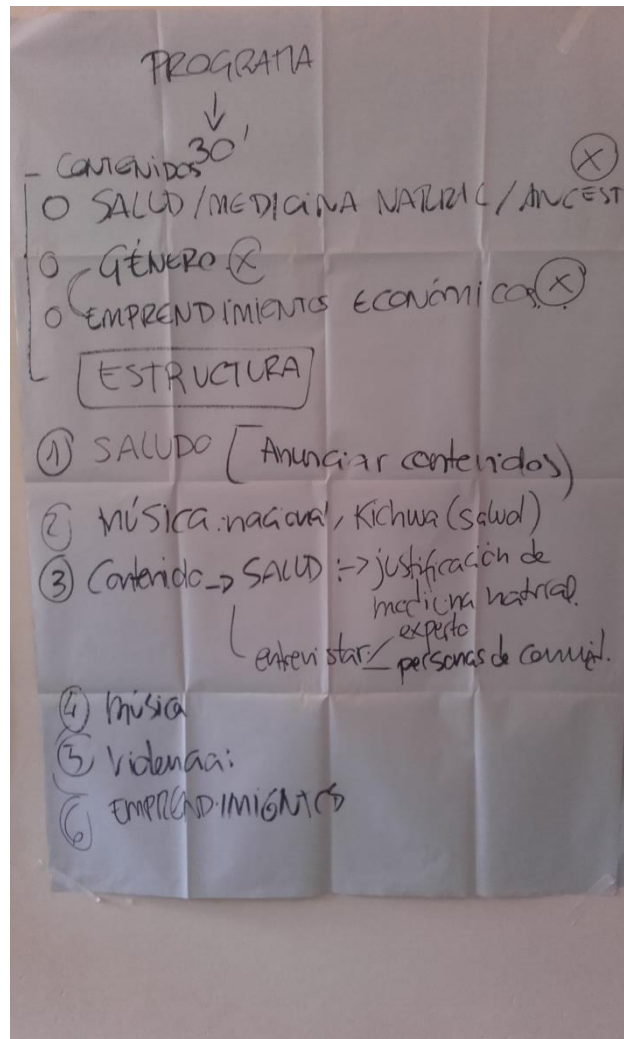 PROGRAMA
↓
30'
- CONTENIDOS
O SALUD/MEDICINA NATURAL/ANCEST (X)
O GÉNERO (X)
O EMPRENDIMIENTOS ECONÓMICOS (X)
ESTRUCTURA
① SALUDO [Anunciar contenidos)
② MÚSICA: nacional, Kichwa (salud)
③ Contenido → SALUD :→ justificación de
medicina natural.
entrevistar: experto
personas de comunid.
④ Música
⑤ Violencia:
⑥ EMPRENDIMIENTOS